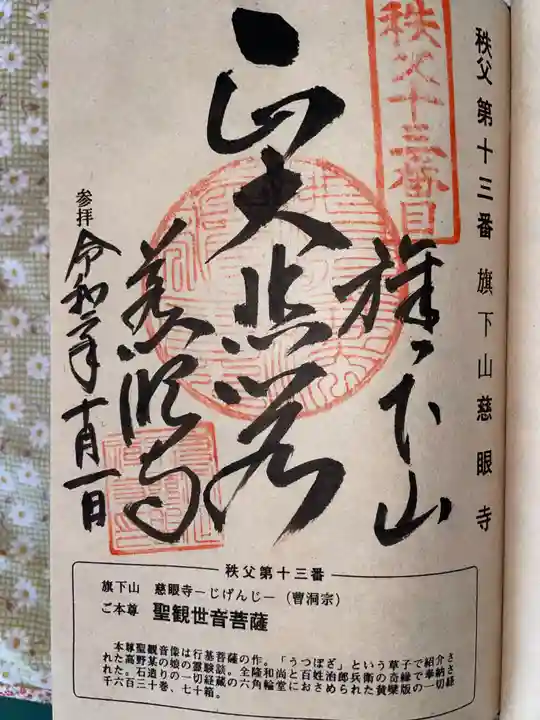 秩父第十三番 旗下山慈眼寺
秩父十三番目
旗下山
大悲閣
慈眼寺
参拝
令和二年十月一日
秩父第十三番
旗下山 慈眼寺－じげんじ－（曹洞宗）
ご本尊 聖観世音菩薩
本尊聖観音像は行基菩薩の作。「うつぼざ」という草子で紹介さ
れた高野某の娘の霊験談。全隆和尚と百姓治郎兵衛の奇縁で奉納さ
れた。石造りの一切経蔵の六角輪堂におさめられた黄檗版の一切経
千六百三十巻、七十箱。